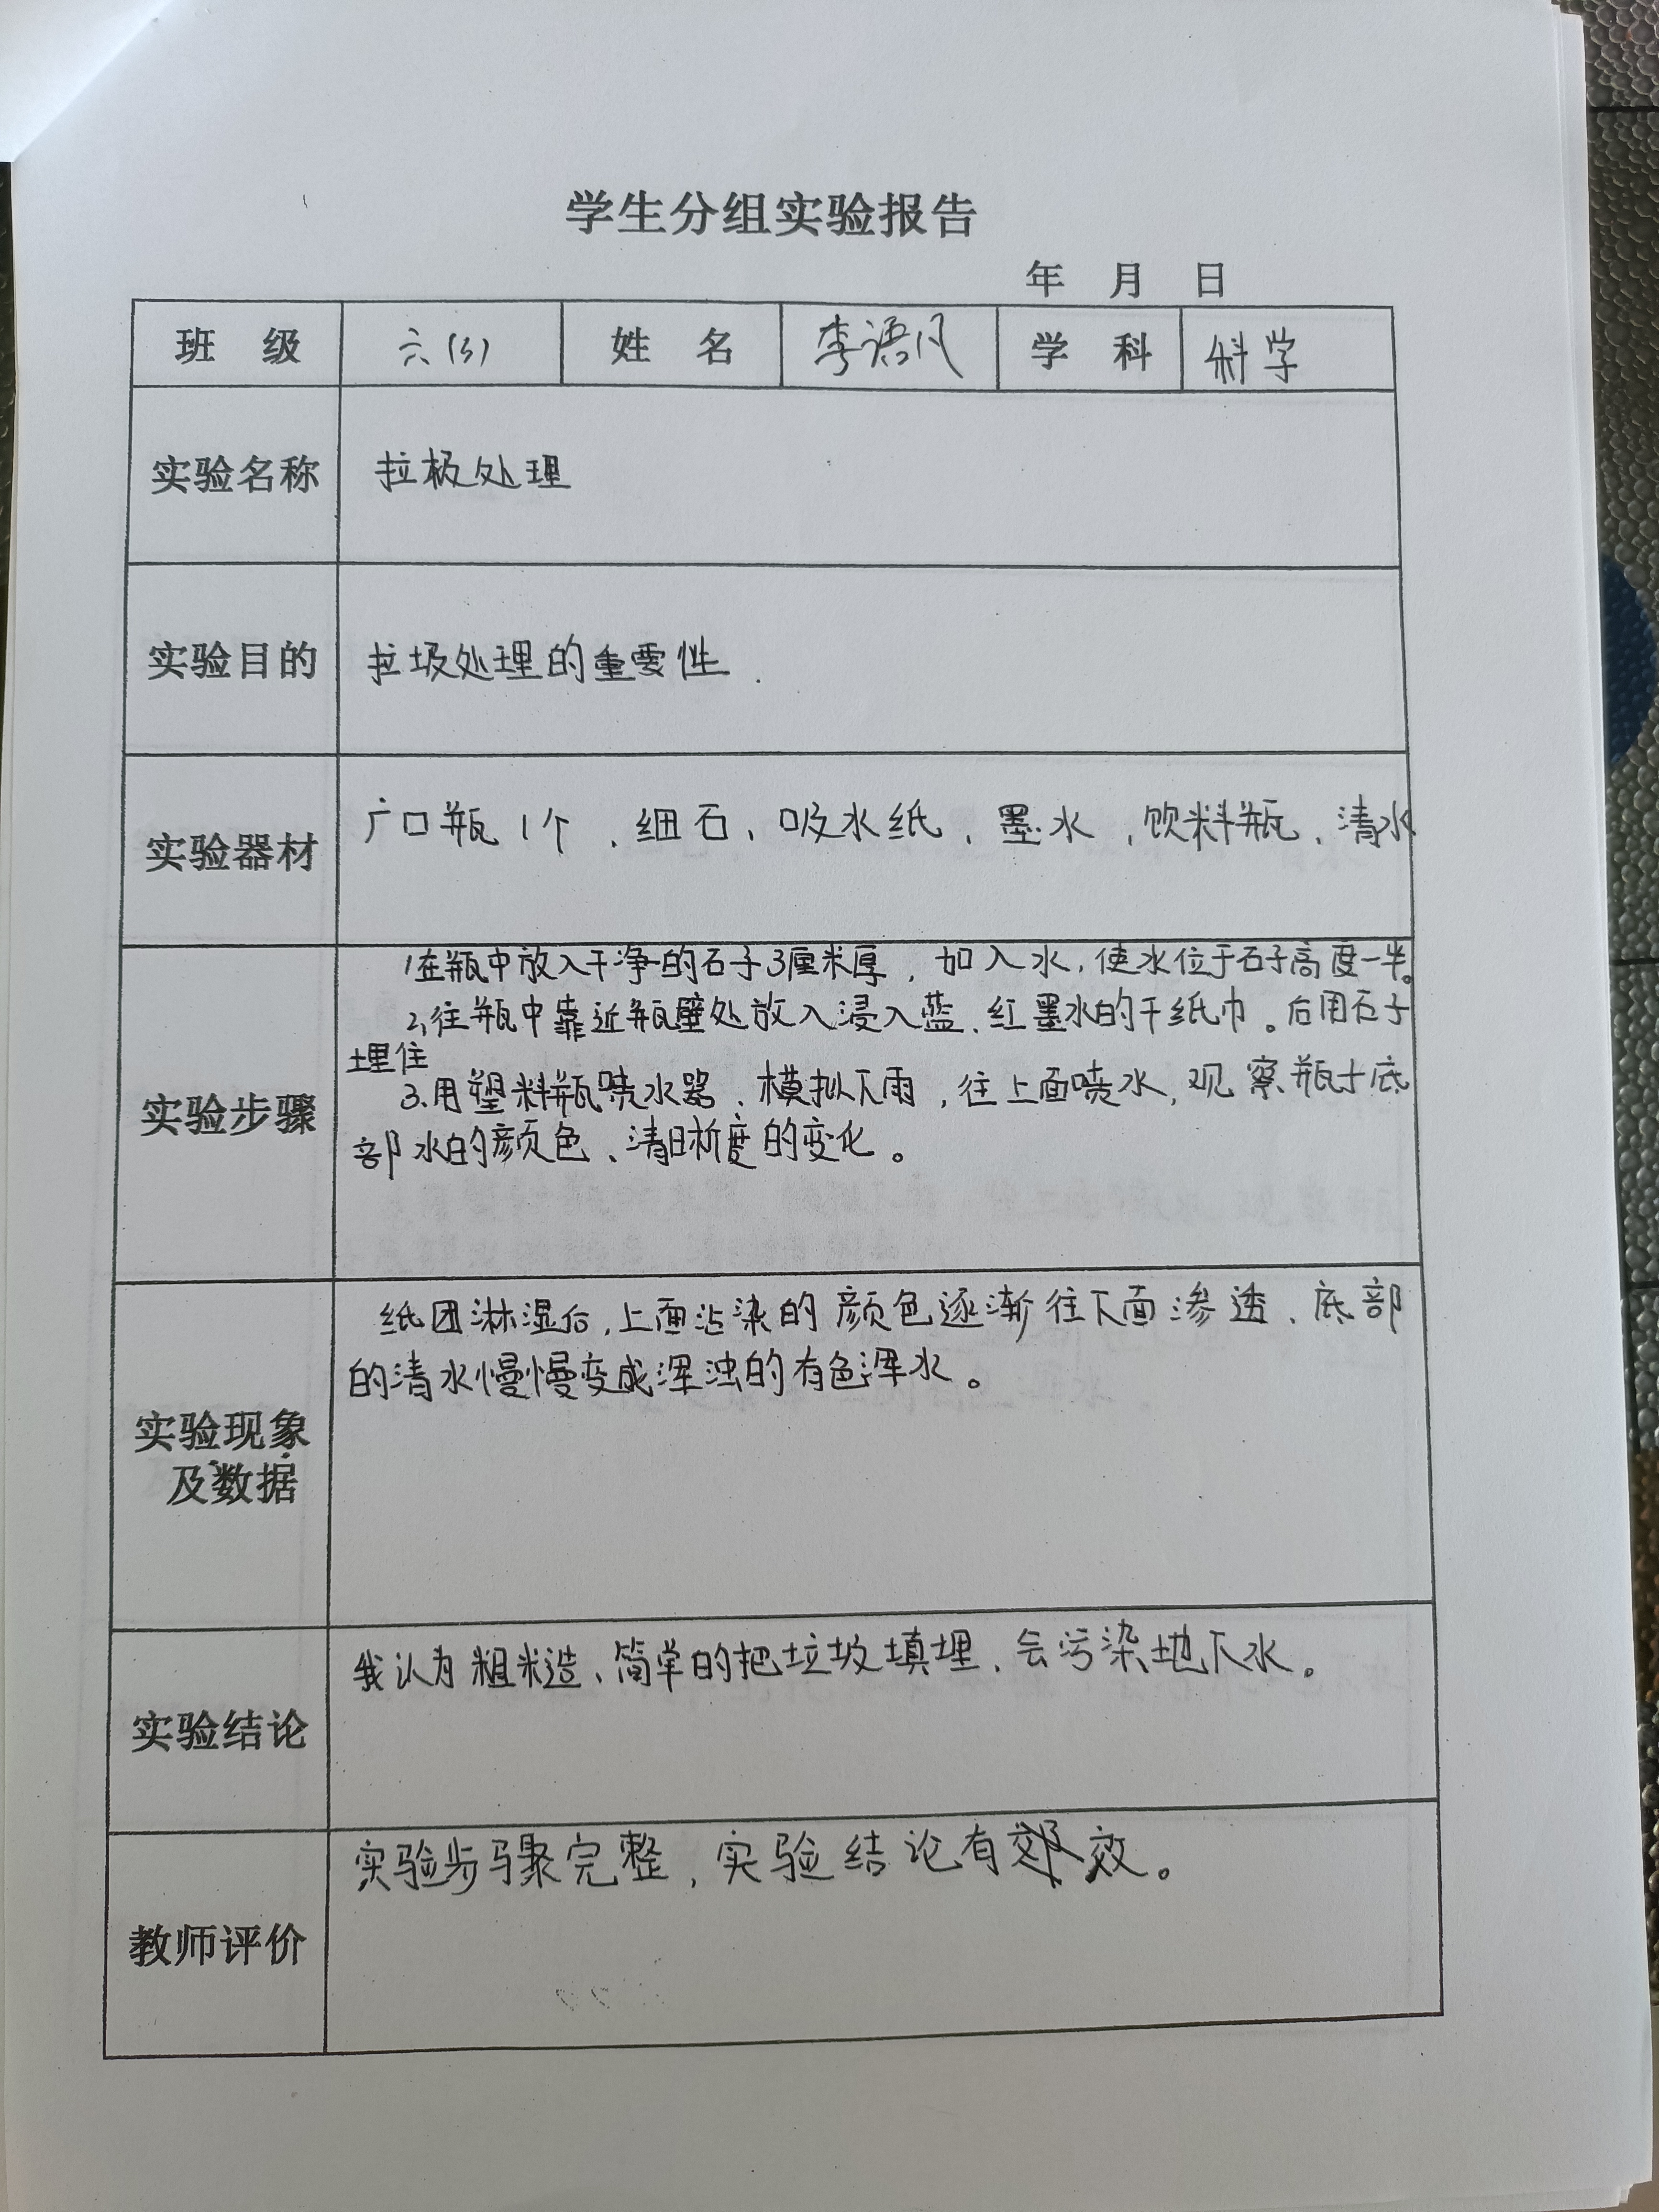 学生分组实验报告
年 月 日
班 级 六(3) 姓 名 李语凡 学 科 科学
实验名称 拉极处理
实验目的 拉圾处理的重要性.
实验器材 广口瓶1个、细石、吸水纸、墨水、饮料瓶、清水
1在瓶中放入干净的石子3厘米厚，如入水，使水位于石子高度一半。
2,往瓶中靠近瓶壁处放入浸入蓝、红墨水的干纸巾。后用石子
埋住
实验步骤 3.用塑料瓶喷水器、模拟下雨，往上面喷水，观察瓶子底
部水的颜色、清晰度的变化。
纸团淋湿后，上面沾染的颜色逐渐往下面渗透、底部
的清水慢慢变成浑浊的有色浑水。
实验现象
及数据
我认为粗糙、简单的把垃圾填埋、会污染地下水。
实验结论
实验步骤完整，实验结论有效。
教师评价